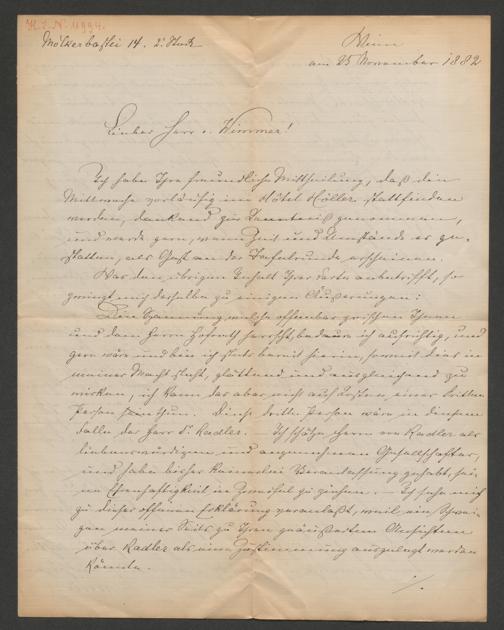 H.I.N. 4994.
Mölkerbastei 14. 2. Stock
Wien
am 25 November 1882
Lieber Herr v. Wimmer!
Ich habe Ihre freundliche Mittheilung, daß die
Mittwoche vorläufig im Hôtel Höller stattfinden
werden, dankend zur Kenntniß genommen,
und werde gern, wenn Zeit und Umstände es ge-
statten, als Gast an der Tafelrunde erscheinen.
Was den übrigen Inhalt Ihrer Karte anbetrifft, so
zwingt mich derselbe zu einigen Äußerungen:
Die Spannung welche offenbar zwischen Ihnen
und dem Herrn Hofrath herrscht, bedaure ich aufrichtig, und
gern wäre und bin ich stets bereit hierin, soweit dies in
meiner Macht steht, glättend und ausgleichend zu
wirken, ich kann das aber nicht auf Kosten einer dritten
Person thun. Diese dritte Person wäre in diesem
Falle der Herr v. Radler. Ich schätze Herrn von Radler als
liebenswürdigen und angenehmen Gesellschafter,
und habe bisher keinerlei Veranlassung gehabt, sei-
ne Ehrenhaftigkeit in Zweifel zu ziehen. – Ich sehe mich
zu dieser offenen Erklärung veranlaßt, weil ein Schwei-
gen meiner Seits zu Ihren geäußerten Ansichten
über Radler als eine Zustimmung ausgelegt werden
könnte.
./.